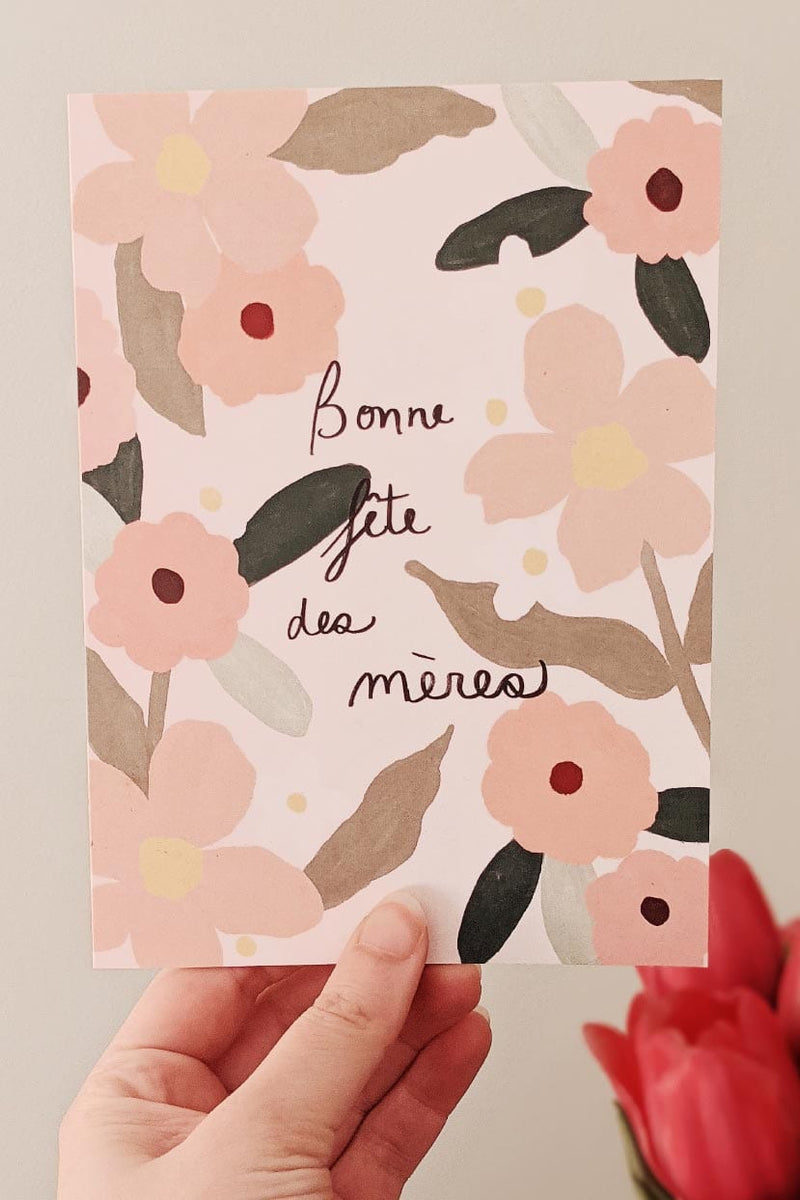 Bonne
fête
des
mères